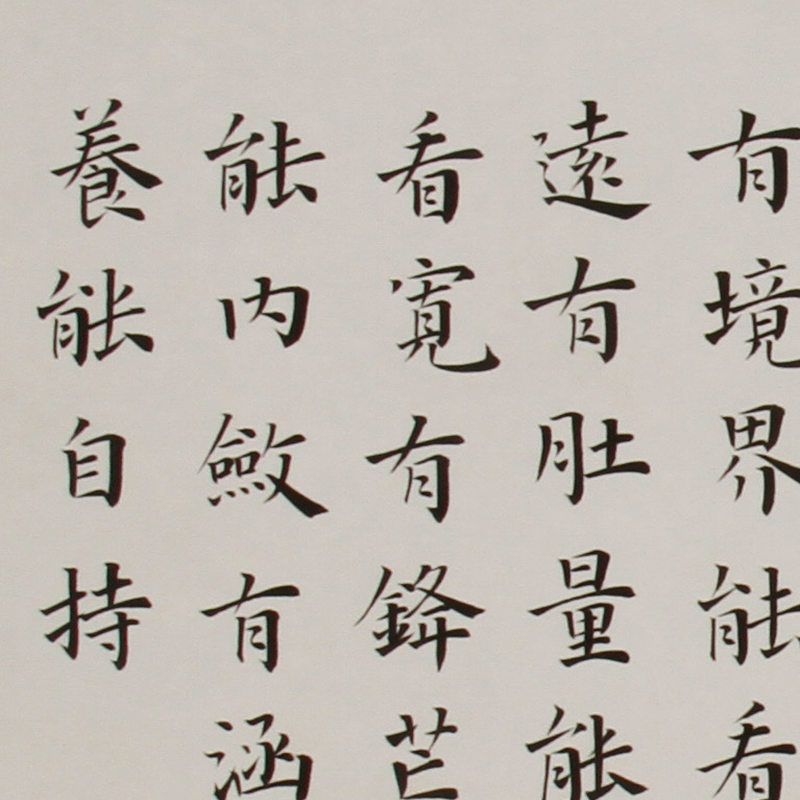 有境界能看
遠有肚量能
看寬有鋒芒
能內斂有涵
養能自持